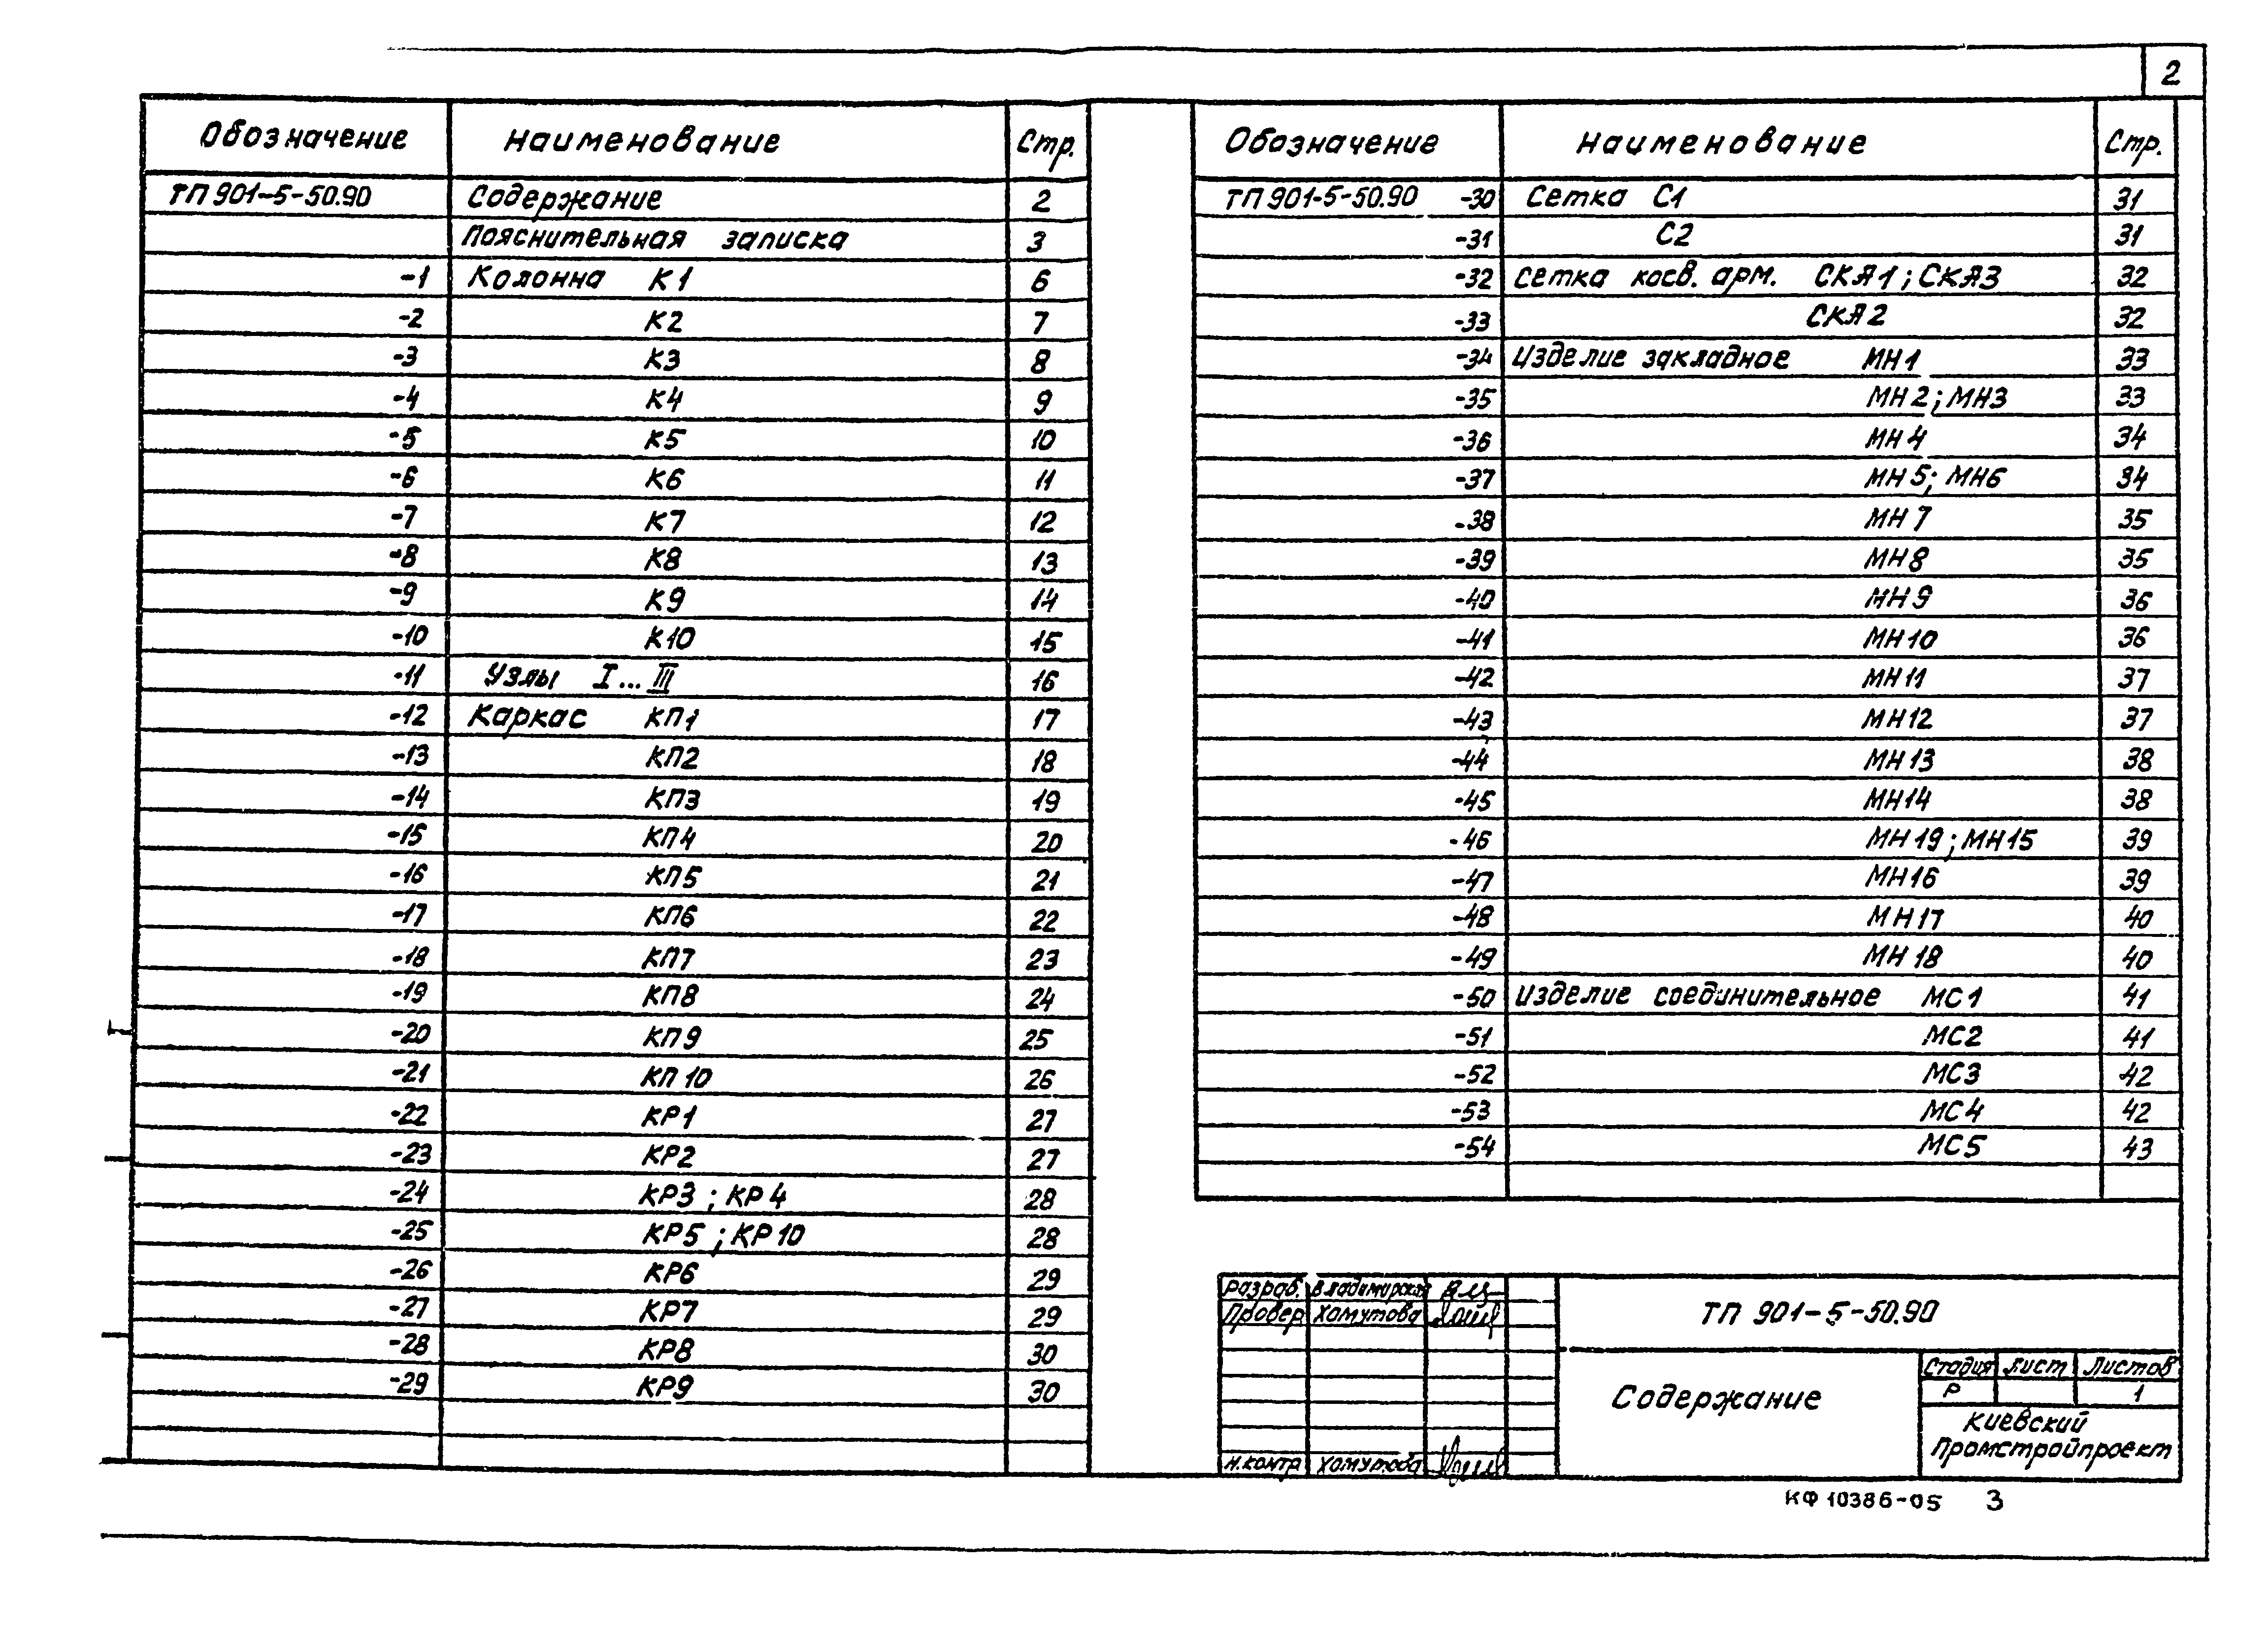 2
Обозначение Наименование Стр.
ТП 901-5-50.90 Содержание 2
Пояснительная записка 3
-1 Колонна К1 6
-2 К2 7
-3 К3 8
-4 К4 9
-5 К5 10
-6 К6 11
-7 К7 12
-8 К8 13
-9 К9 14
-10 К10 15
-11 Узлы I...III 16
-12 Каркас КП1 17
-13 КП2 18
-14 КП3 19
-15 КП4 20
-16 КП5 21
-17 КП6 22
-18 КП7 23
-19 КП8 24
-20 КП9 25
-21 КП10 26
-22 КР1 27
-23 КР2 27
-24 КР3; КР4 28
-25 КР5; КР10 28
-26 КР6 29
-27 КР7 29
-28 КР8 30
-29 КР9 30
Обозначение Наименование Стр.
ТП 901-5-50.90 -30 Сетка С1 31
-31 С2 31
-32 Сетка косв. арм. СКА1; СКА3 32
-33 СКА2 32
-34 Изделие закладное МН1 33
-35 МН2; МН3 33
-36 МН4 34
-37 МН5; МН6 34
-38 МН7 35
-39 МН8 35
-40 МН9 36
-41 МН10 36
-42 МН11 37
-43 МН12 37
-44 МН13 38
-45 МН14 38
-46 МН19; МН15 39
-47 МН16 39
-48 МН17 40
-49 МН18 40
-50 Изделие соединительное МС1 41
-51 МС2 41
-52 МС3 42
-53 МС4 42
-54 МС5 43
Разраб.
Провер Хомутова
Н.контр Хомутова
ТП 901-5-50.90
Содержание
Стадия Лист Листов
Р 1
Киевский
Промстройпроект
КФ 10386-05 3